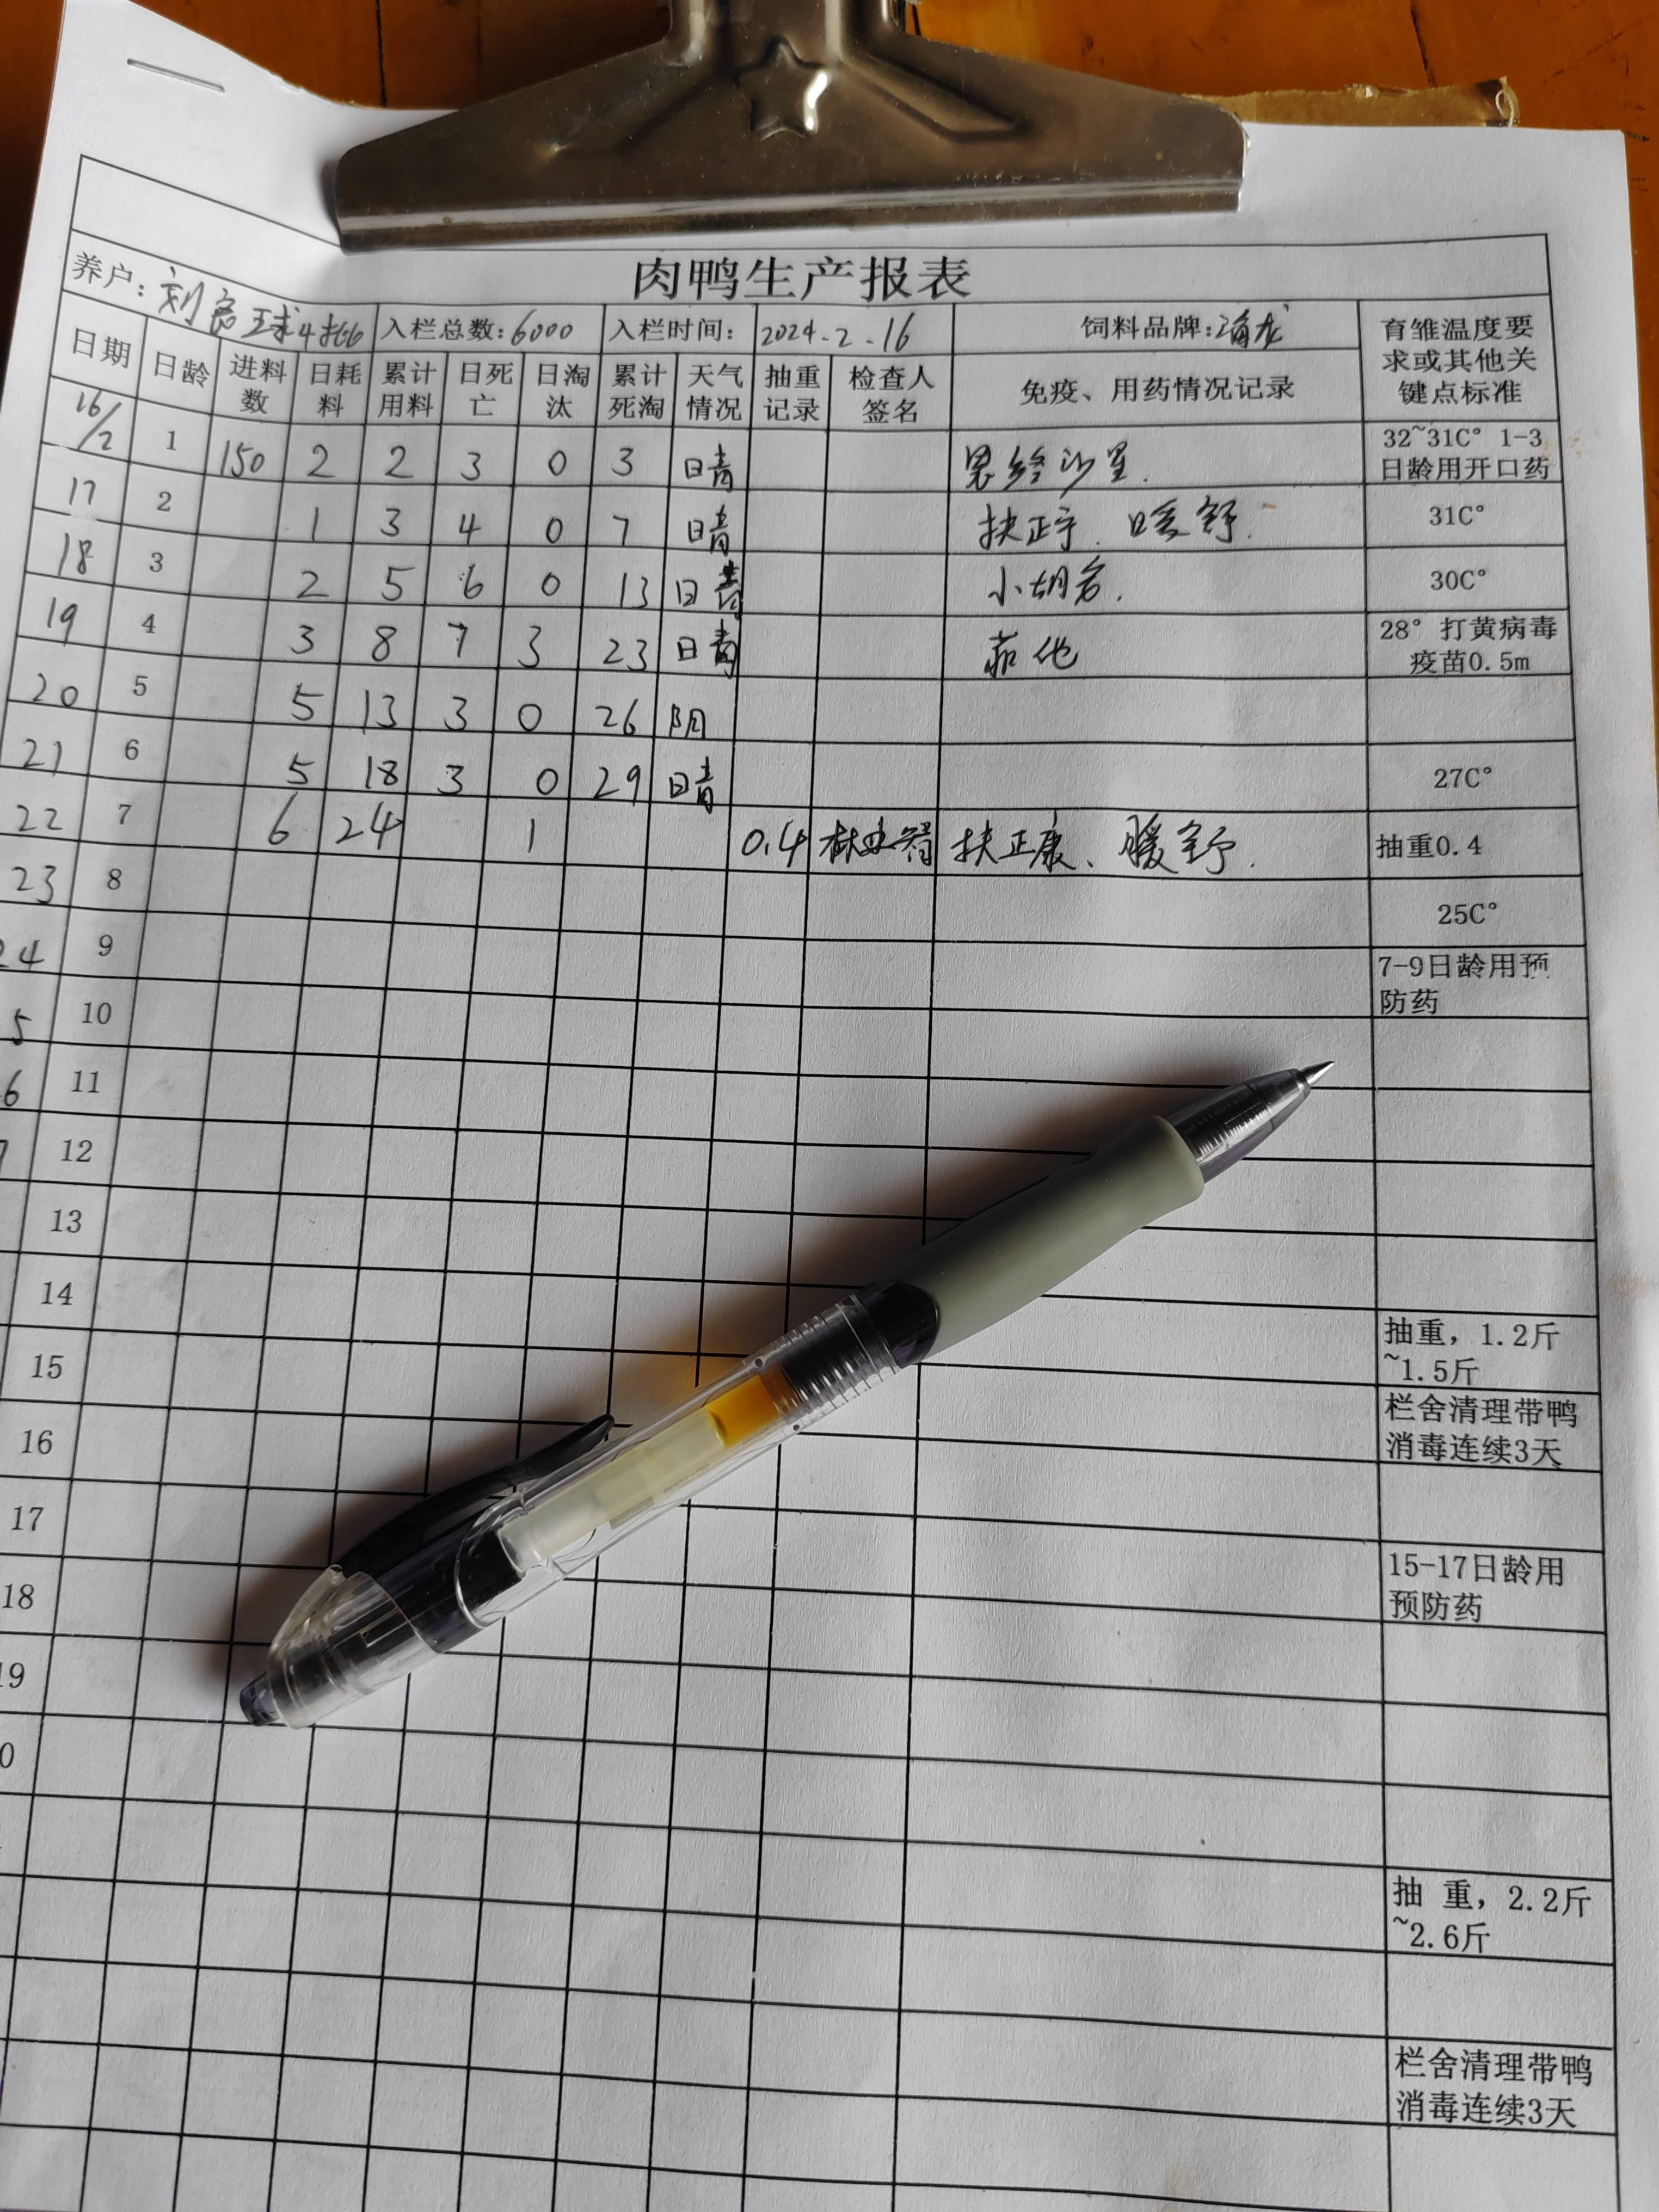 肉鸭生产报表
养户：
入栏总数：6000 入栏时间： 2024.2.16 饲料品牌：海龙 育雏温度要求或其他关键点标准
日期 日龄 进料数 日耗料 累计用料 日死亡 日淘汰 累计死淘 天气情况 抽重记录 检查人签名 免疫、用药情况记录
16/2 1 150 2 2 3 0 3 晴 恩给沙星. 32~31C° 1-3日龄用开口药
17 2 1 3 4 0 7 晴 扶正宁. 暖舒. 31C°
18 3 2 5 6 0 13 晴 30C°
19 4 3 8 7 3 23 晴 28° 打黄病毒疫苗0.5m
20 5 5 13 3 0 26 阴
21 6 5 18 3 0 29 晴 27C°
22 7 6 24 1 0.4 扶正康、暖舒. 抽重0.4
23 8 25C°
24 9 7-9日龄用预防药
5 10
6 11
7 12
13
14 抽重，1.2斤~1.5斤
15 栏舍清理带鸭消毒连续3天
16
17 15-17日龄用预防药
18
19
0
抽 重，2.2斤~2.6斤
栏舍清理带鸭消毒连续3天